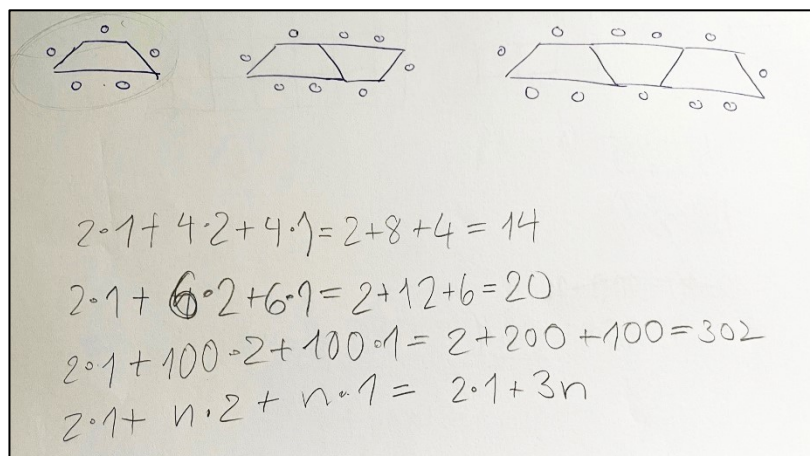 2·1+ 4·2+4·1=2+8+4=14
2·1+ 6·2+6·1=2+12+6=20
2·1+100·2+100·1= 2+200+100=302
2·1+ n·2+ n·1= 2·1+3n